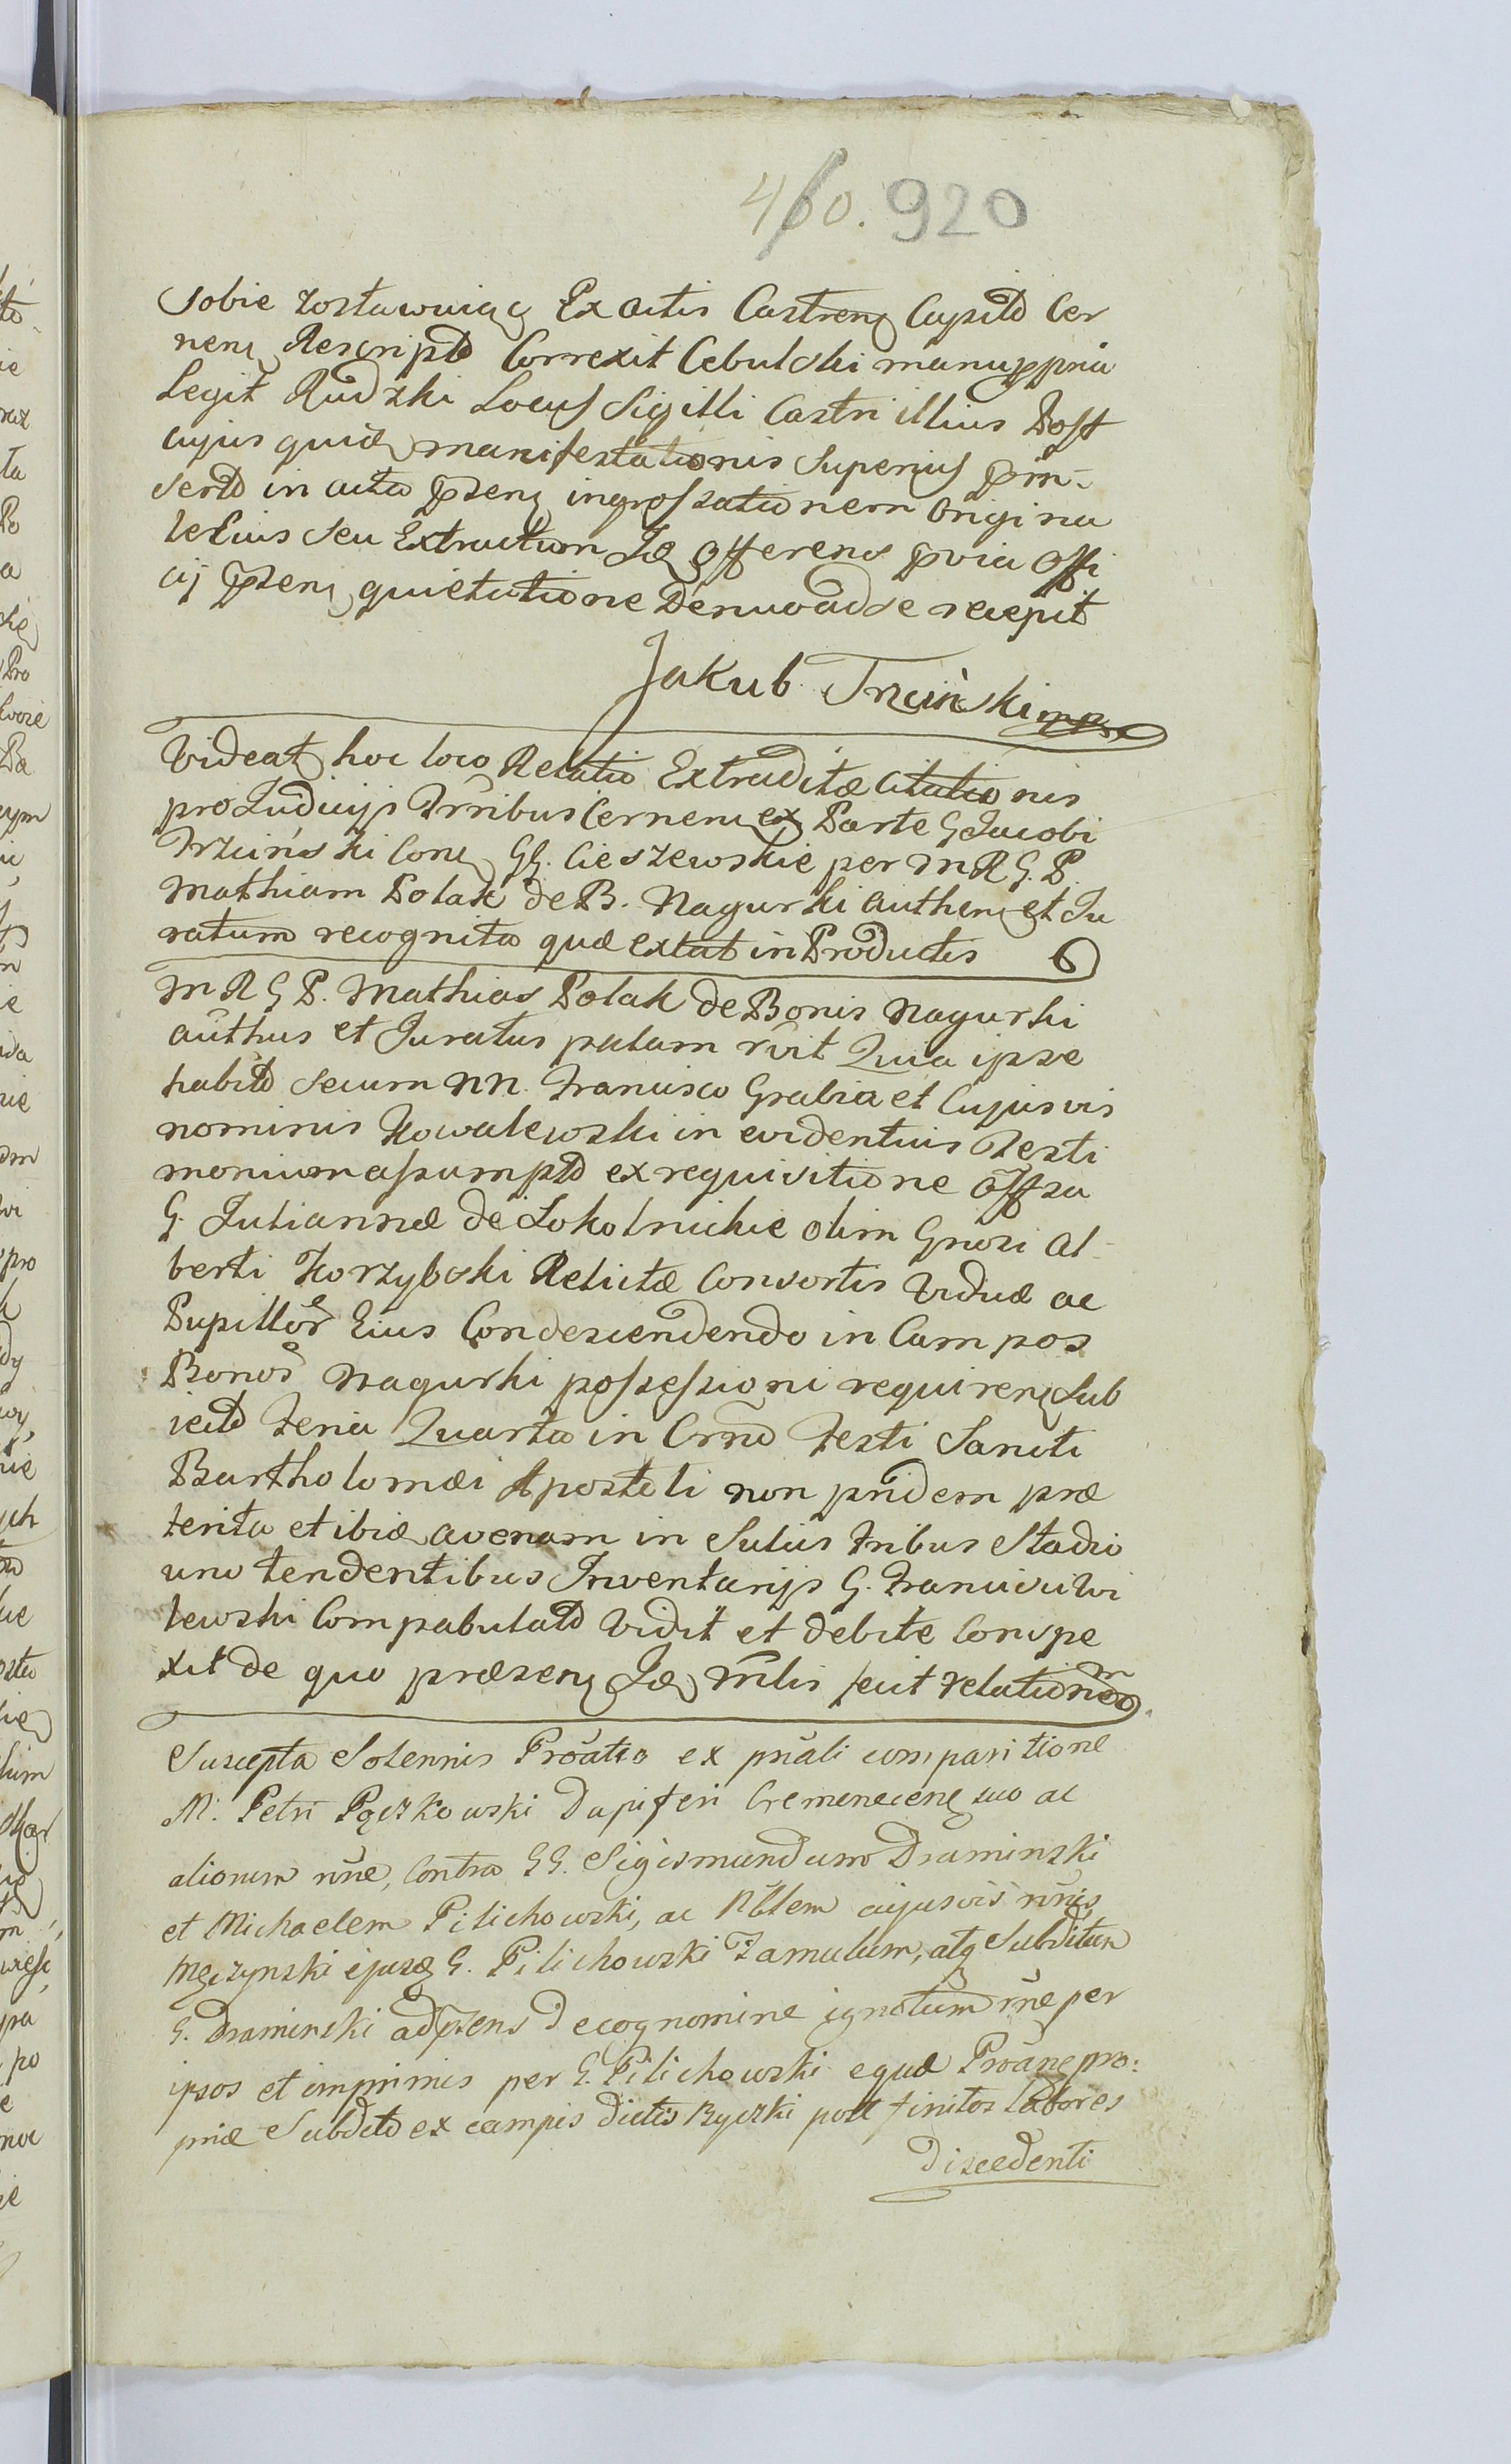 460. 920
Sobie zostawuiąc Ex Actis Castren Capitl Cer
nen Rescript Correxit Cebulski manu ppria
Legit Rudzki Locus Sigilli Castri illius Post
cujus quid manifestationis Superius pin-
sert in acta pzen ingrossationem Origina
le Eius seu Extractum Id Offerens pvia Offi
cij pzen quietatione Denuo ad se recepit
Jakub Trzciński mp
Videat hoc loco Relatio Extraditæ Citationis
pro Judicijs Trribus Cernen ex Parte G Jacobi
Trzcinski Con GG. Cieszewskie per M R G. P.
Mathiam Polak de B. Nagurki Authen et Ju
ratum recognita quæ extat in Productis
M R G P. Mathias Polak de Bonis Nagurki
authus et Juratus palam rvit Quia ipse
habit secum NN. Francisco Grabia et Cujusvis
nominis Kowalewski in evidentius Testi
monium assumpt ex requisitione Offsa
G. Juliannæ de Sokolnickie olim Gnosi Al-
berti Korzybski Relictæ Consortis Viduæ ac
Pupillor Eius Condescendendo in Campos
Bonor Nagurki possessioni requiren Sub
iect Feria Quarta in Crno Festi Sancti
Bartholomæi Apostoli non pridem præ
terita et ibid avenam in Sulcis tribus Stadio
uno tendentibus Inventarijs G. Francisci Wi
lewski Compabulat Vidit et debite Conspe
xit de quo præsen Id Mlis fecit relationem
Suscepta Solennis Proatio ex pnali comparitione
M. Petri Pączkowski Dapiferi Cremenecen suo ac
aliorum nne, Contra GG. Sigismundum Draminski
et Michaelem Pilichowski, ac Nblem cujusvis nnis
Męczynski ejusd G. Pilichowski Famulum, atq Subditum
G. Draminski ad pzens de cognomine ignotum rne per
ipsos et imprimis per G. Pilichowski equæ Proane pro:
priæ Subdito ex campis dictis Byczki post finitos labores
discedenti